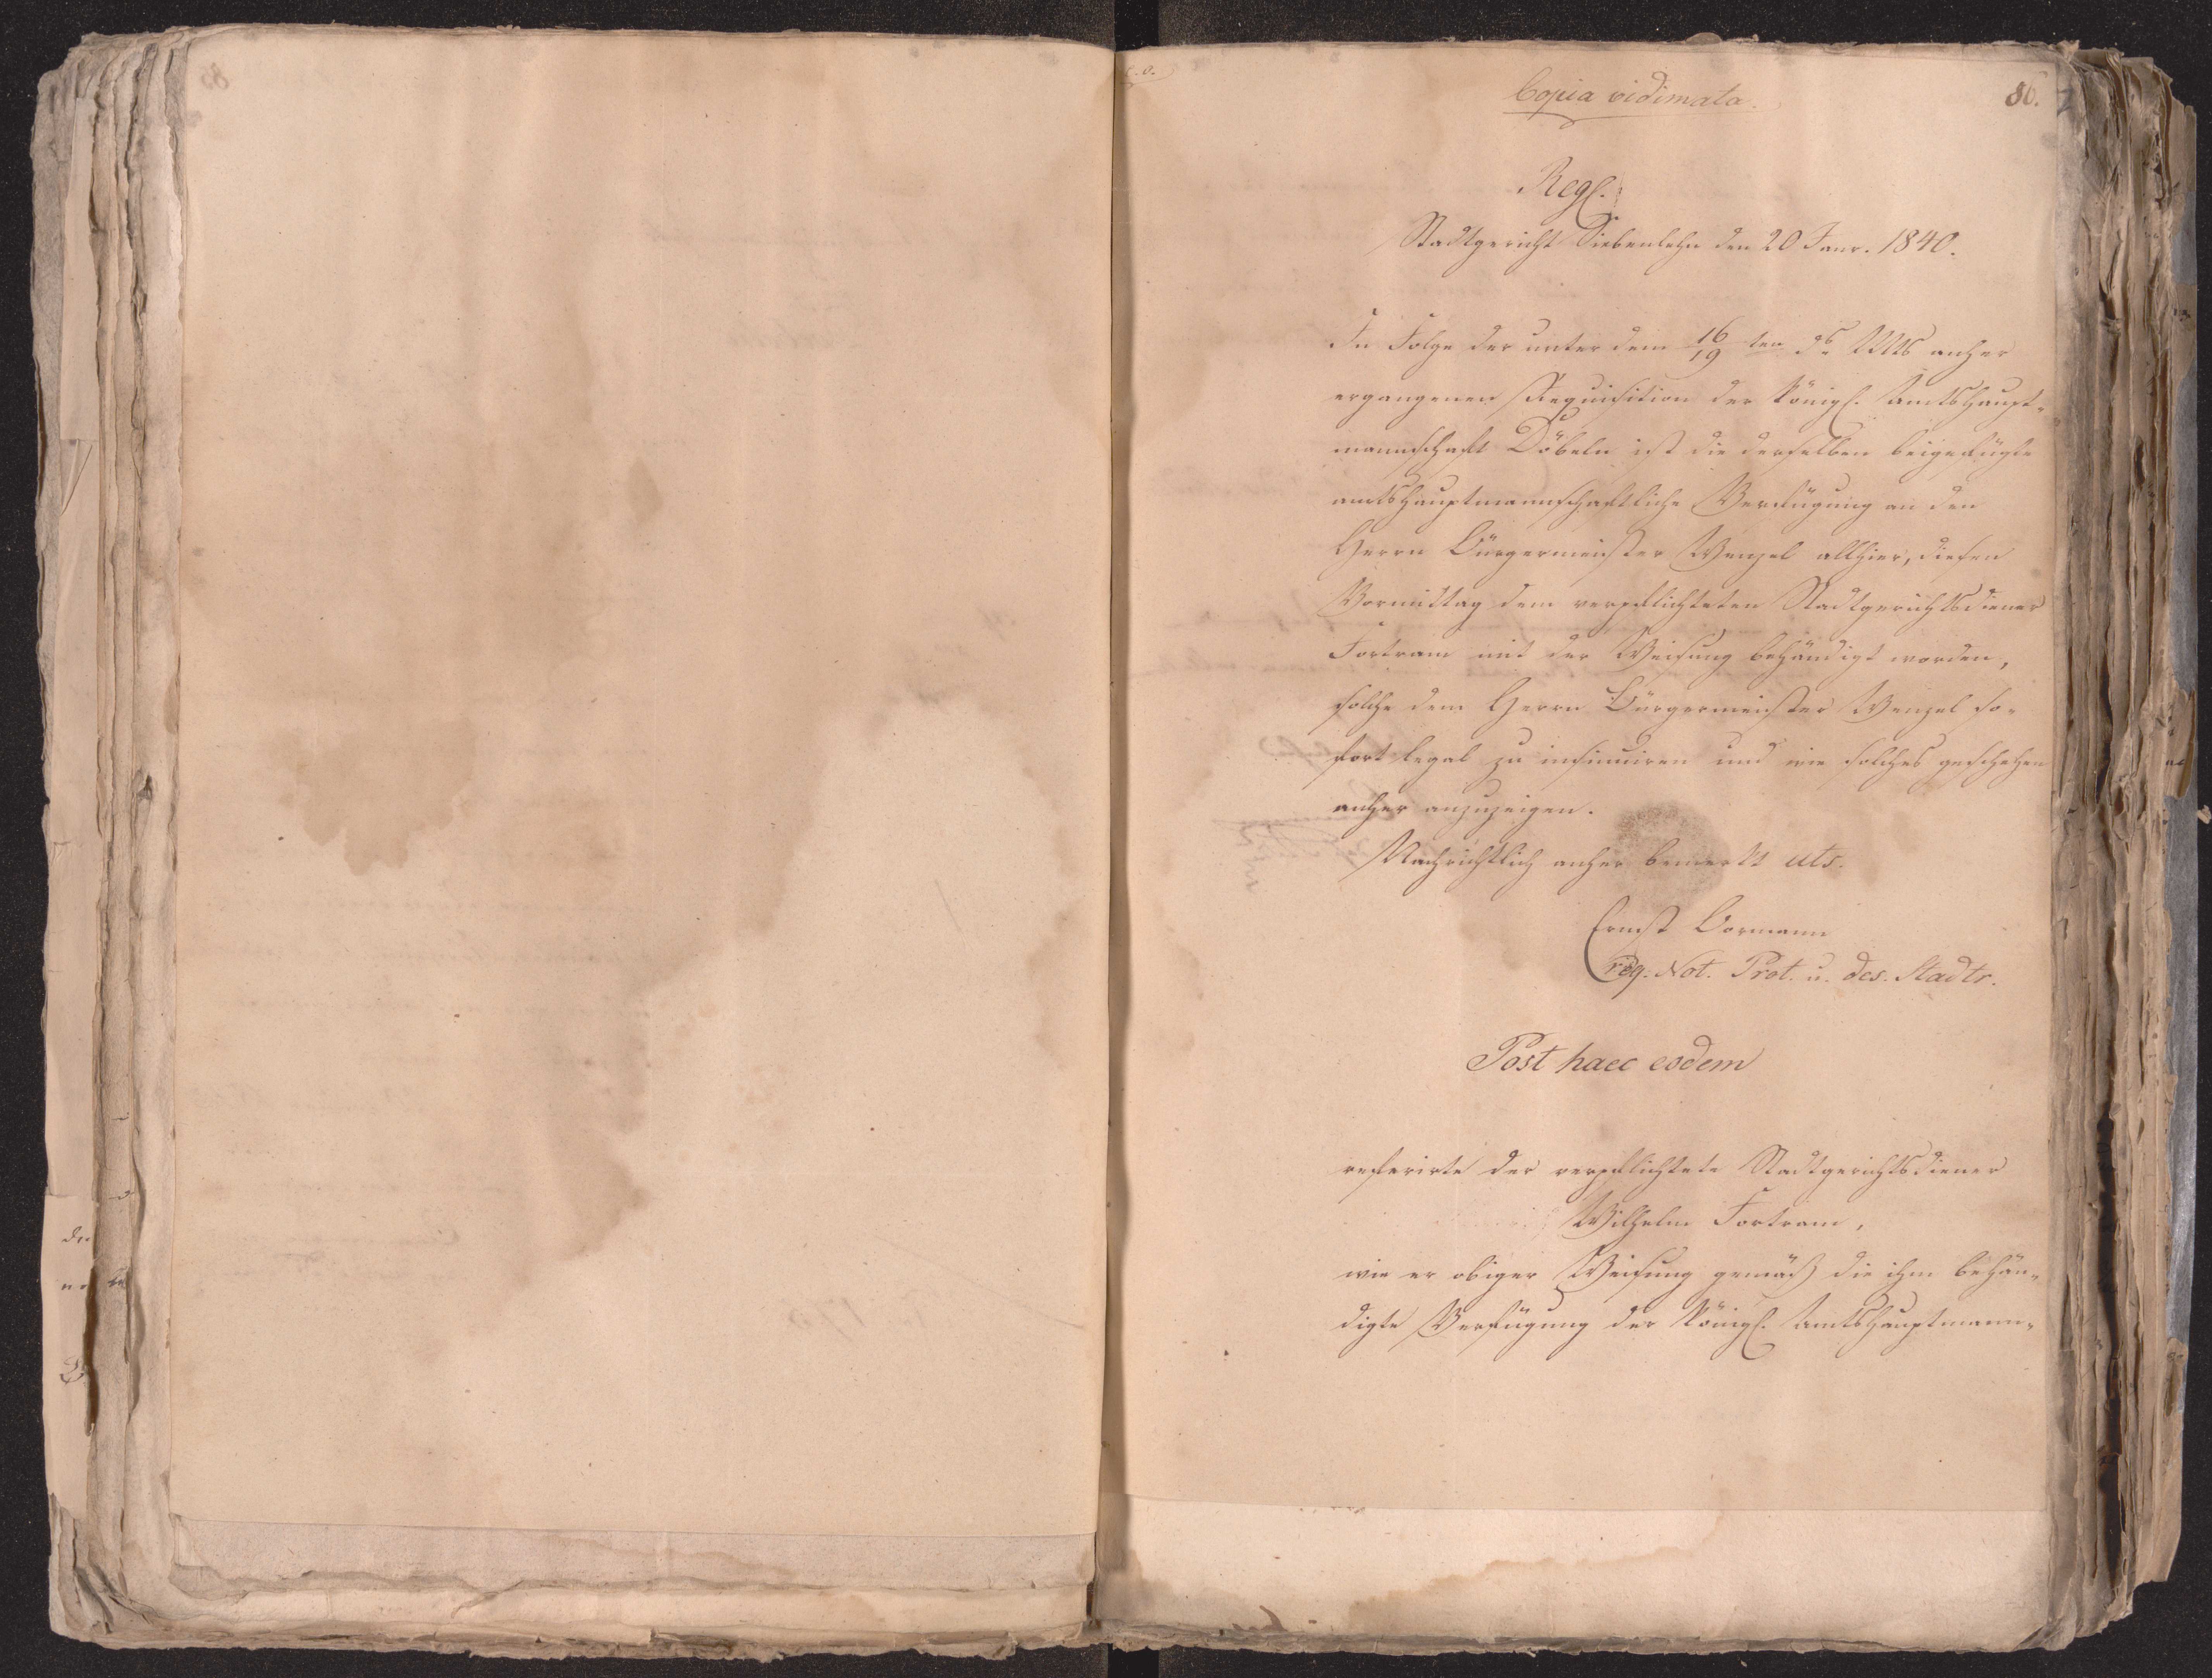 Copia vidimata.
86.
Regl.
Stadtgericht Siebenlehn den 20 Janr. 1840.
In Folge der unter dem 16/19 ten ds Mts anher
ergangenen Requisition der Königl. Amtshaupt-
mannschaft Döbeln ist die derselben beigefügte
amtshauptmannschaftliche Verfügung an den
Herrn Bürgermeister Wenzel allhier, diesen
Vormittag dem verpflichteten Stadtgerichtsdiener
Fortram mit der Weisung behändigt worden,
solche dem Herrn Bürgermeister Wenzel so-
fort legal zu insinuiren und wie solches geschehen
anher anzuzeigen.
Nachrichtlich anher bemerkt uts.
Ernst Bormann
req. Not. Prot. u. des. Stadtr.
Post haec eodem
referirte der verpflichtete Stadtgerichtsdiener
Wilhelm Fortram,
wie er obiger Weisung gemäß die ihm behän-
digte Verfügung der Königl. Amtshauptmann-